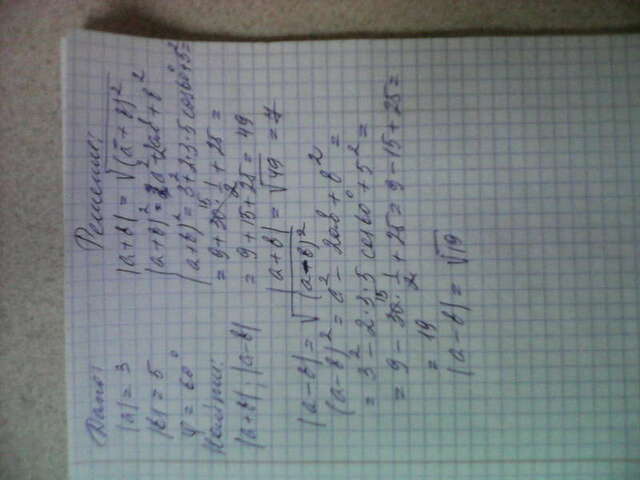 Дано:
|a| = 3
|b| = 5
φ = 60°
Найти:
|a+b|; |a-b|
Решение:
|a+b| = √(a+b)²
(a+b)² = a²+2ab+b²
(a+b)² = 3²+2·3·5 cos60°+5²=
= 9+30·1/2+25 =
= 9+15+25 = 49
|a+b| = √49 = 7
|a-b| = √(a-b)²
(a-b)² = a² - 2ab + b² =
= 3² - 2·3·5 cos60° + 5² =
= 9 - 30·1/2 + 25 = 9-15+25 =
= 19
|a-b| = √19